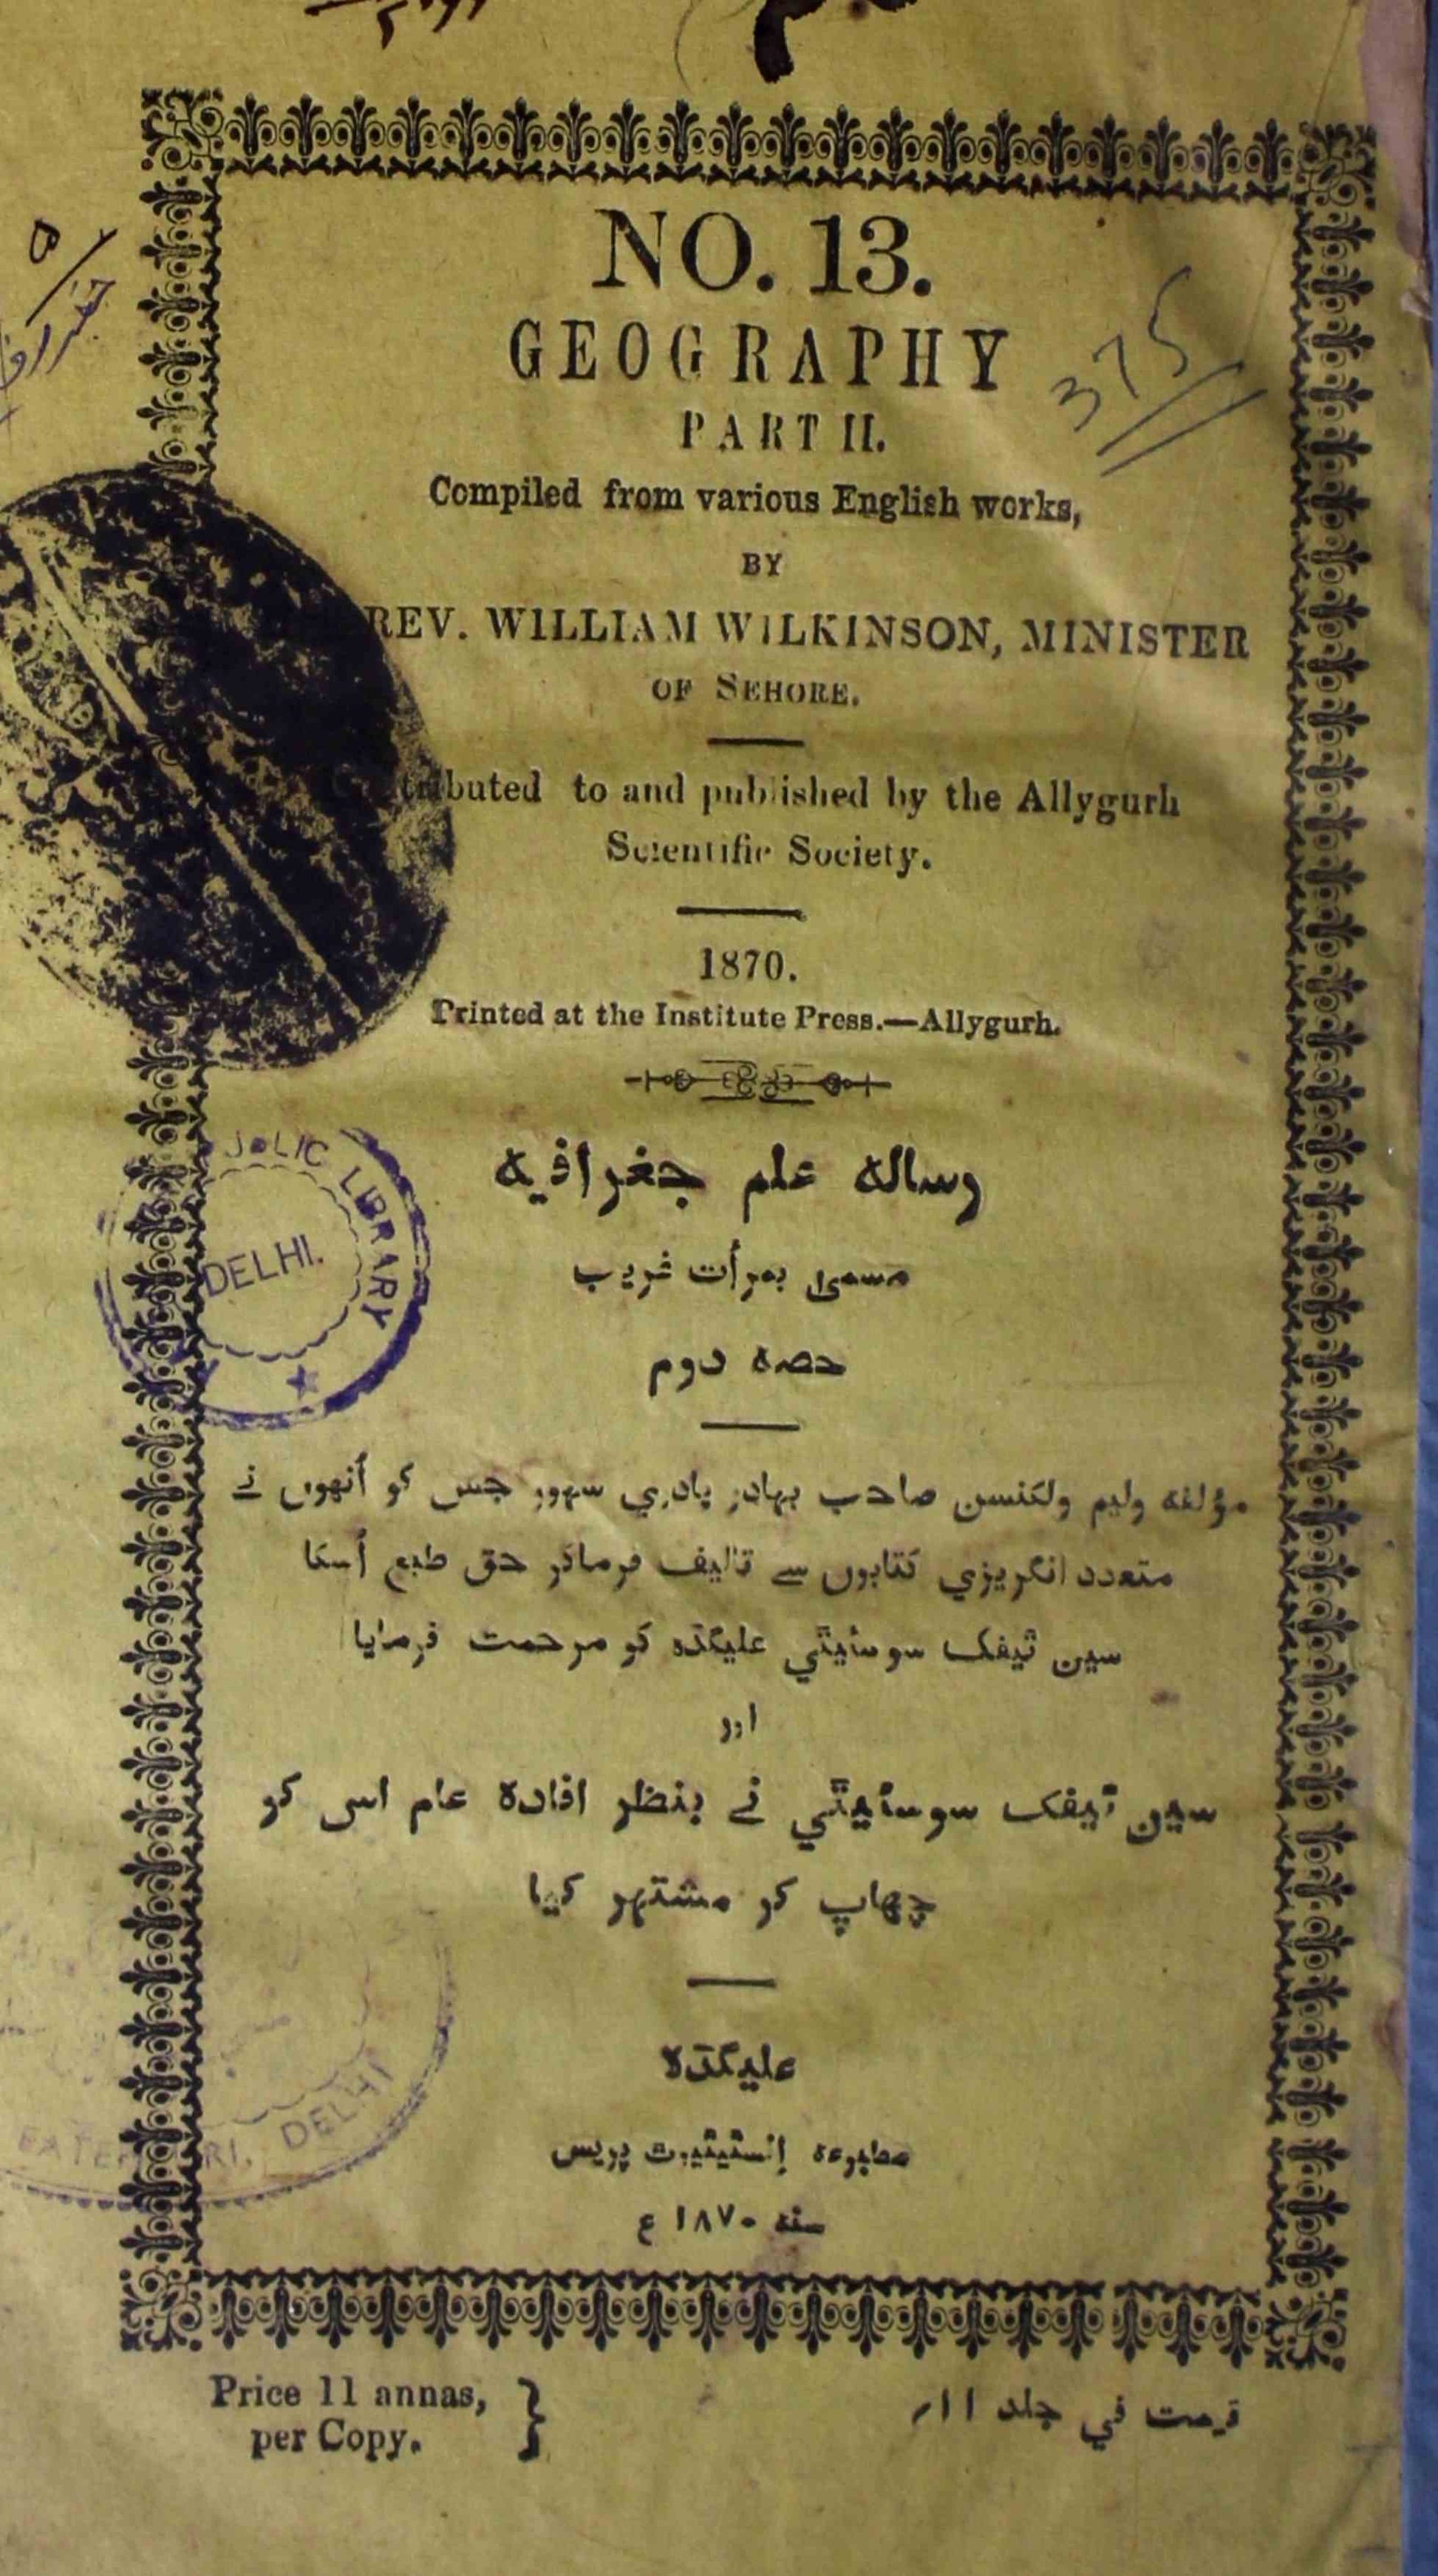 NO. 13.
GEOGRAPHY
PART II.
375
Compiled from various English works,
BY
REV. WILLIAM WILKINSON, MINISTER
OF SEHORE.
tributed to and published by the Allygurh
Scientific Society.
1870.
Printed at the Institute Press.—Allygurh.
رساله علم جغرافیه
مسمی بمرأت غریب
حصه دوم
LIBRARY
DELHI.
مؤلفه ولیم ولکنسن صاحب بهادر پادري سهور جس کو اُنهوں نے
متعدد انگریزي کتابوں سے تالیف فرماکر حق طبع اُسکا
سین ٹیفک سوسئیٹي علیگڈه کو مرحمت فرمایا
اور
سین ٹیفک سوسئیٹي نے بنظر افاده عام اس کو
چهاپ کر مشتهر کیا
علیگڈه
مطبوعه إنسٹیٹیوٹ پریس
سنه ۱۸۷۰ ع
DELHI
Price 11 annas,
per Copy.
قیمت في جلد ۱۱ر